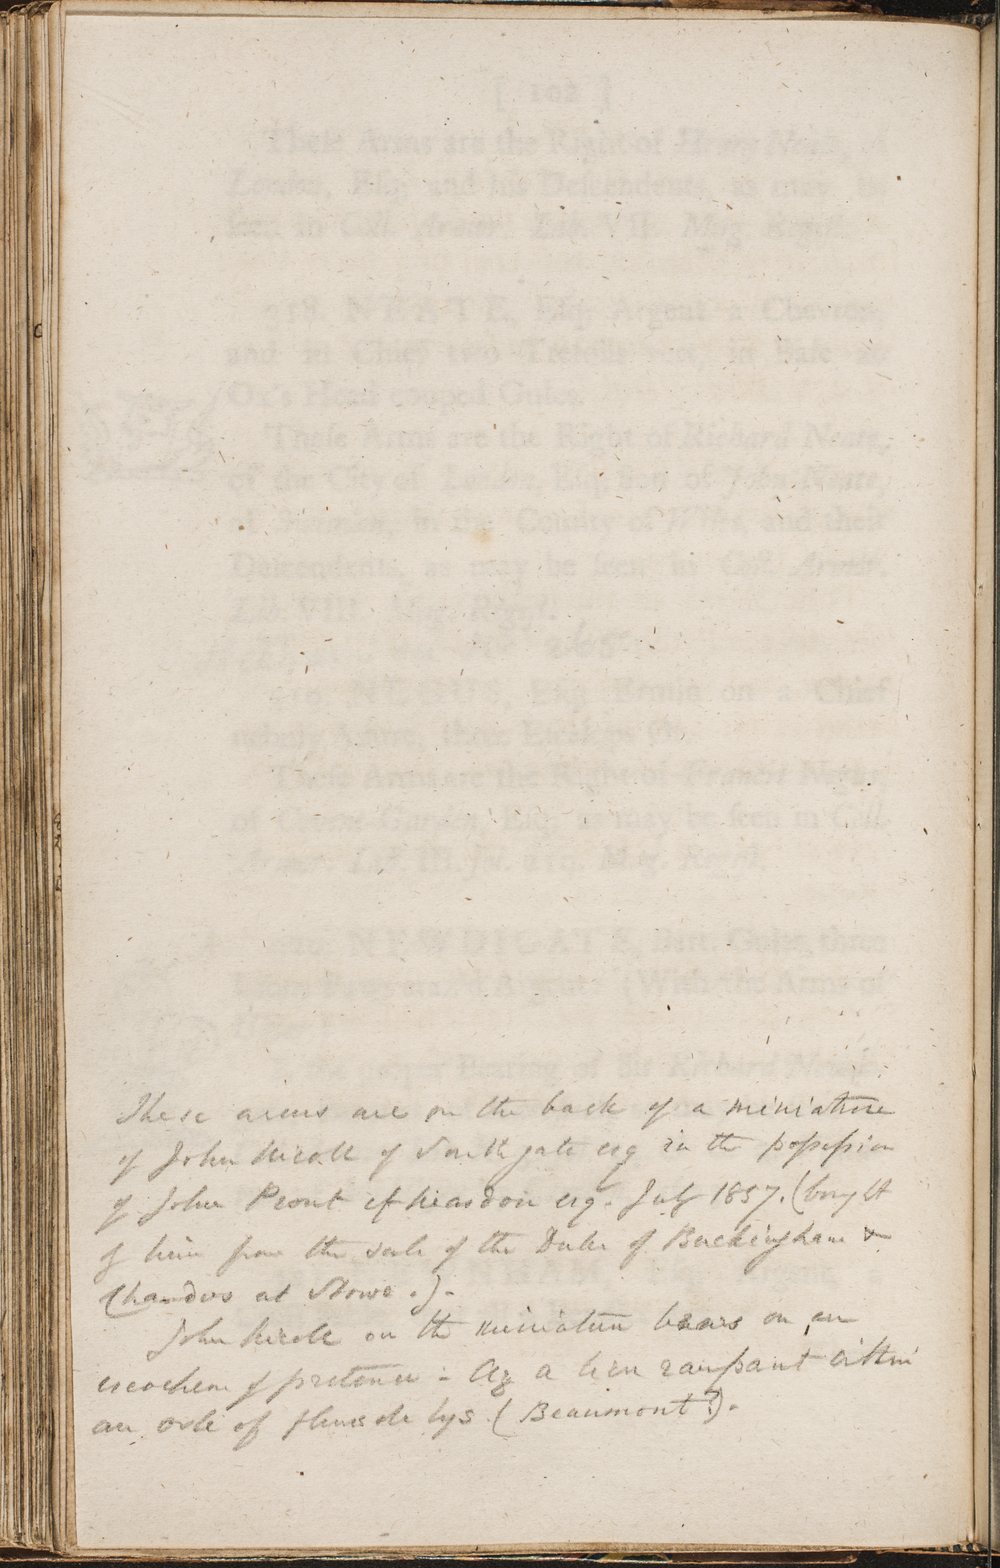 These arms are on the back of a miniature
of John Nicoll of Southgate esq in the possession
of John Prout of Neasdon esq. July 1857. (bought
of him from the sale of the Duke of Buckingham &
Chandos at Stowe.).
John Nicoll on the miniature bears on an
escocheon of pretence - Az a lion rampant within
an orle of fleurs de lys (Beaumont?).